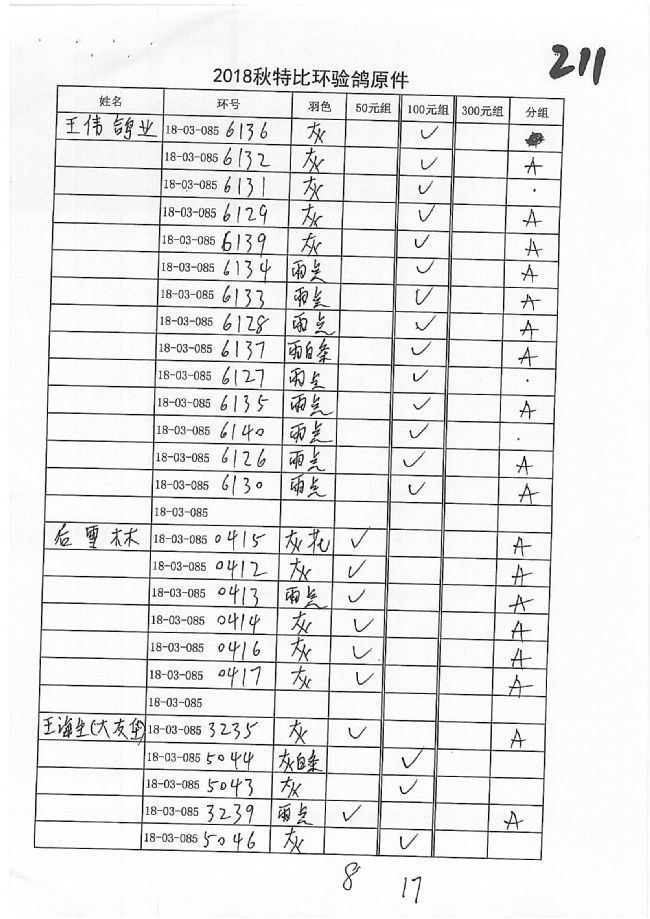 211
2018秋特比环验鸽原件
姓名 环号 羽色 50元组 100元组 300元组 分组
王伟鸽业 18-03-085 6136 灰 ✓
18-03-085 6132 灰 ✓ A
18-03-085 6131 灰 ✓ .
18-03-085 6129 灰 ✓ A
18-03-085 6139 灰 ✓ A
18-03-085 6134 雨点 ✓ A
18-03-085 6133 雨点 ✓ A
18-03-085 6128 雨点 ✓ A
18-03-085 6137 雨白条 ✓ A
18-03-085 6127 雨点 ✓ .
18-03-085 6135 雨点 ✓ A
18-03-085 6140 雨点 ✓ .
18-03-085 6126 雨点 ✓ A
18-03-085 6130 雨点 ✓ A
18-03-085
后雪林 18-03-085 0415 灰花 ✓ A
18-03-085 0412 灰 ✓ A
18-03-085 0413 雨点 ✓ A
18-03-085 0414 灰 ✓ A
18-03-085 0416 灰 ✓ A
18-03-085 0417 灰 ✓ A
18-03-085
王海生(大友堡) 18-03-085 3235 灰 ✓ A
18-03-085 5044 灰白条 ✓
18-03-085 5043 灰 ✓
18-03-085 3239 雨点 ✓ A
18-03-085 5046 灰 ✓
8 17